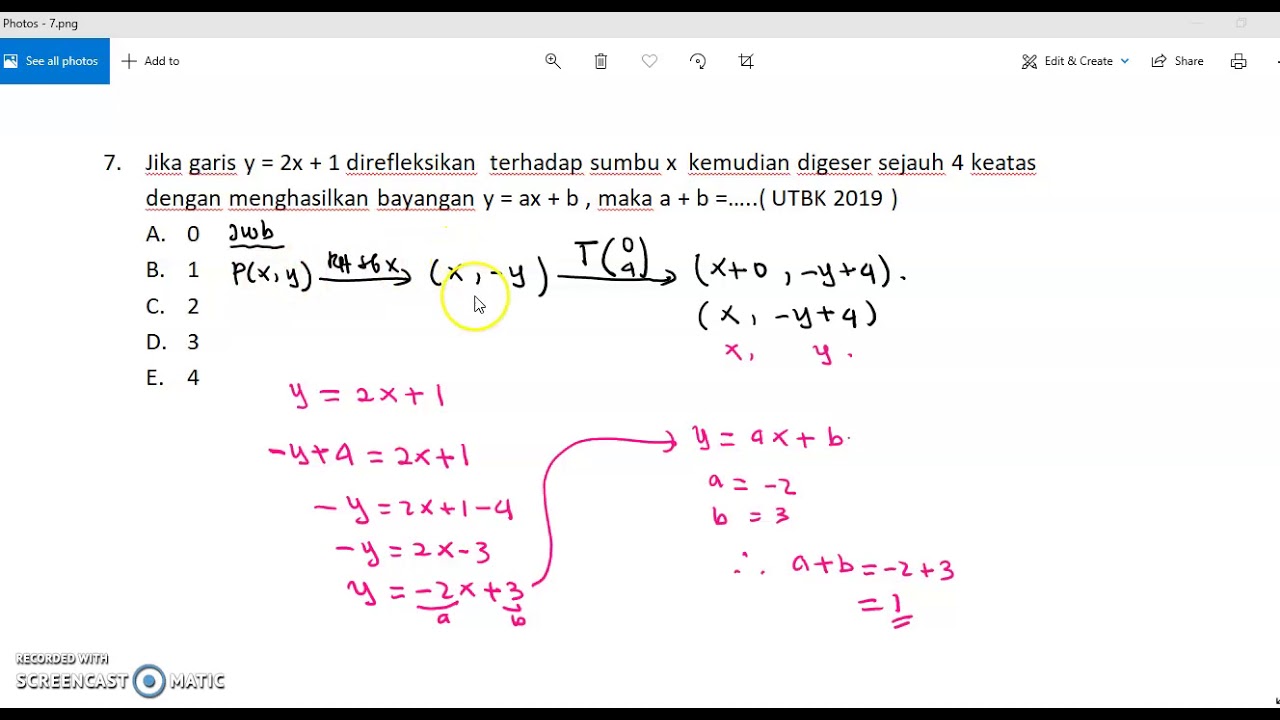 Photos - 7.png
See all photos
Add to
Edit & Create
Share
7. Jika garis y = 2x + 1 direfleksikan terhadap sumbu x kemudian digeser sejauh 4 keatas
dengan menghasilkan bayangan y = ax + b , maka a + b =.....( UTBK 2019 )
A. 0
Jwb
B. 1
P(x, y) → (x, -y) T(0 4) → (x+0, -y+4).
C. 2
(x, -y+4)
D. 3
x, y.
E. 4
y = 2x+1
-y+4 = 2x+1
-y = 2x+1-4
-y = 2x-3
y = -2x+3
a b
y = ax + b.
a = -2
b = 3
∴ a+b = -2+3
= 1
RECORDED WITH
SCREENCAST MATIC